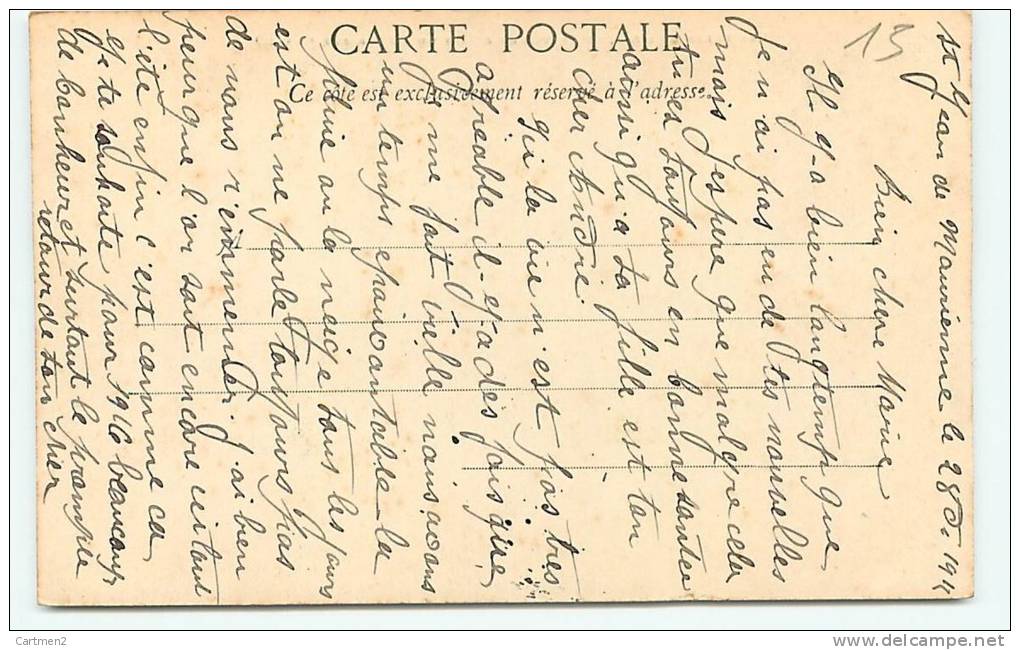 CARTE POSTALE
Ce côté est exclusivement réservé à l'adresse.
13
St Jean de Maurienne le 28 D. 191
Bien chere Marie
Il y-a bien longtemp que
Je n'ai pas eu de tes nouvelles
mais J'espere que malgre cela
tu es toujours en bonne santer
ainsi qu'a ta fille et ton
cher André
Ici la vie n'est pas tres
agreable il-y-a des fois que
me fait vielle nous avons
un temps epouvantable la
pluie ou la neige tous les jours
et on ne parle toujours pas
de nous r'emmener J'ai bien
peur que l'on soit encore ici tout
l'été enfin c'est comme ca
Je te souhaite pour 1916 beaucoup
de bonheur et surtout le prompte
retour de ton cher
Cartmen2
www.delcampe.net